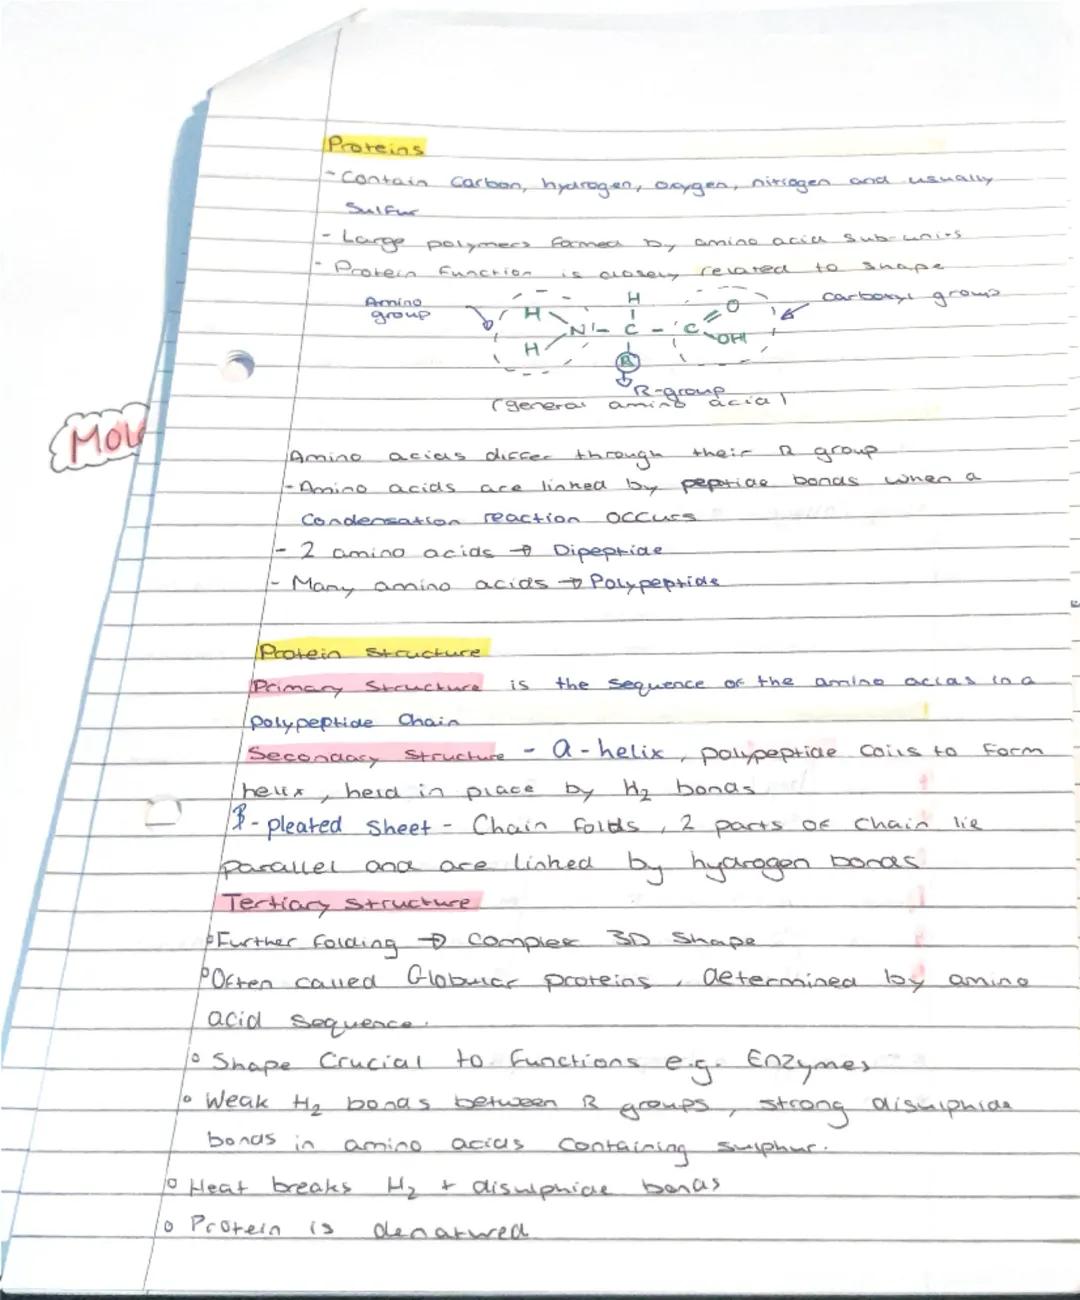 Proteins
- Contain Carbon, hydrogen, oxygen, nitrogen and usually
Sulfur
- Large polymers formed by amino acid sub-units
- Protein function is closely related to shape
Amino group
H H N - C - C O OH
H
R
carboxyl group
R-group
(general amino acid)
Mol
Amino acids differ through their R group
- Amino acids are linked by peptide bonds when a
Condensation reaction occurs
- 2 amino acids → Dipeptide
- Many amino acids → Polypeptide
Protein Structure
Primary Structure is the sequence of the amino acids in a
polypeptide Chain
Secondary Structure - α-helix, polypeptide coils to form
helix, held in place by H₂ bonds
β-pleated sheet - Chain folds, 2 parts of chain lie
parallel and are linked by hydrogen bonds
Tertiary structure
° Further folding → Complex 3D Shape
° Often called Globular proteins, determined by amino
acid sequence.
° Shape Crucial to functions e.g. Enzymes
° Weak H₂ bonds between R groups, strong disulphide
bonds in amino acids containing sulphur.
° Heat breaks H₂ + disulphide bonds
° Protein is denatured